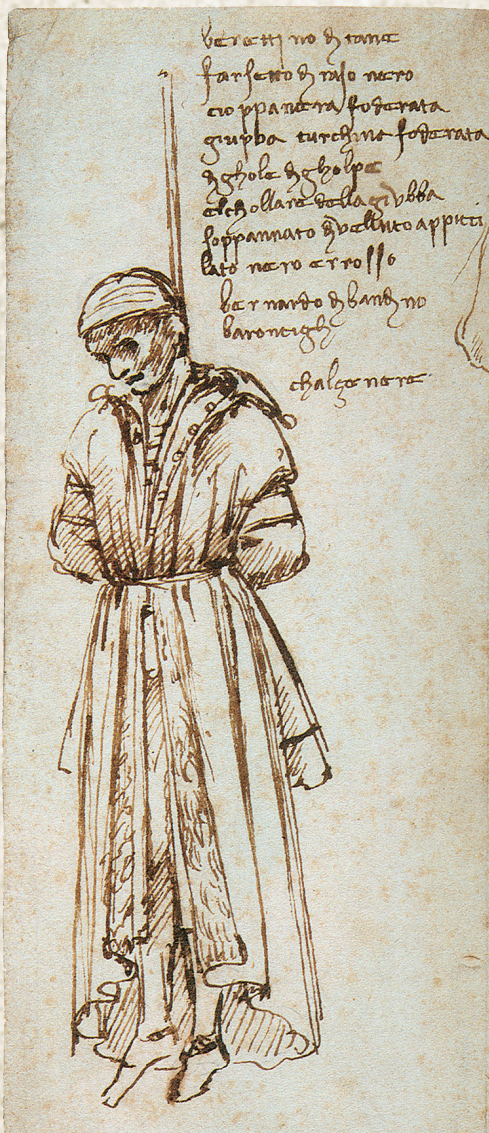 berettino di tane
farsetto di raso nero
cioppa nera foderata
giubba turchina foderata
di ghole di gholpe
el chollare della giubba
soppannato di velluto appicci
lato nero e rosso
bernardo di bandino
baroncigli
chalze nere